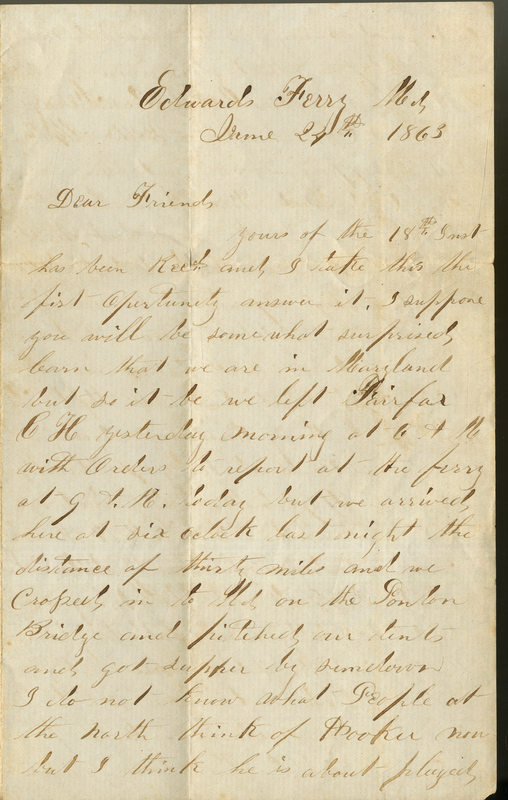 Edwards Ferry Md
June 24th 1863
Dear Friends
yours of the 18th Inst
has been Recd and I take this the
first Opertunity answer it. I suppose
you will be somewhat surprised
learn that we are in Maryland
but so it be we left Fairfax
C H yesterday morning at 6 A M
with Orders to report at the ferry
at 9 A.M. today but we arrived
here at six oclock last night the
distance of thirty miles and we
Crossed in to Md on the Ponton
Bridge and pitched our tents
and got supper by sundown
I do not know what People at
the north think of Hooker now
but I think he is about played